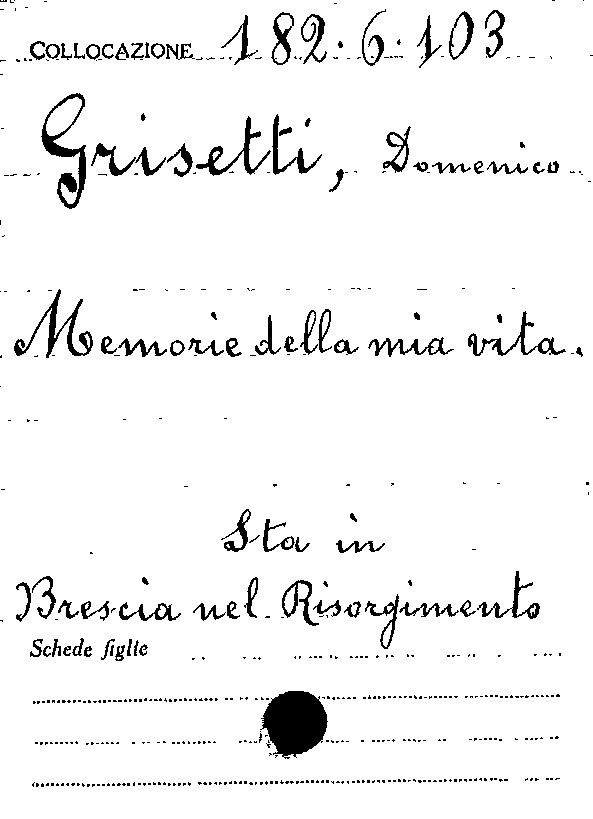 COLLOCAZIONE 182.6.103
Grisetti, Domenico
Memorie della mia vita.
Sta in
Brescia nel Risorgimento
Schede figlie